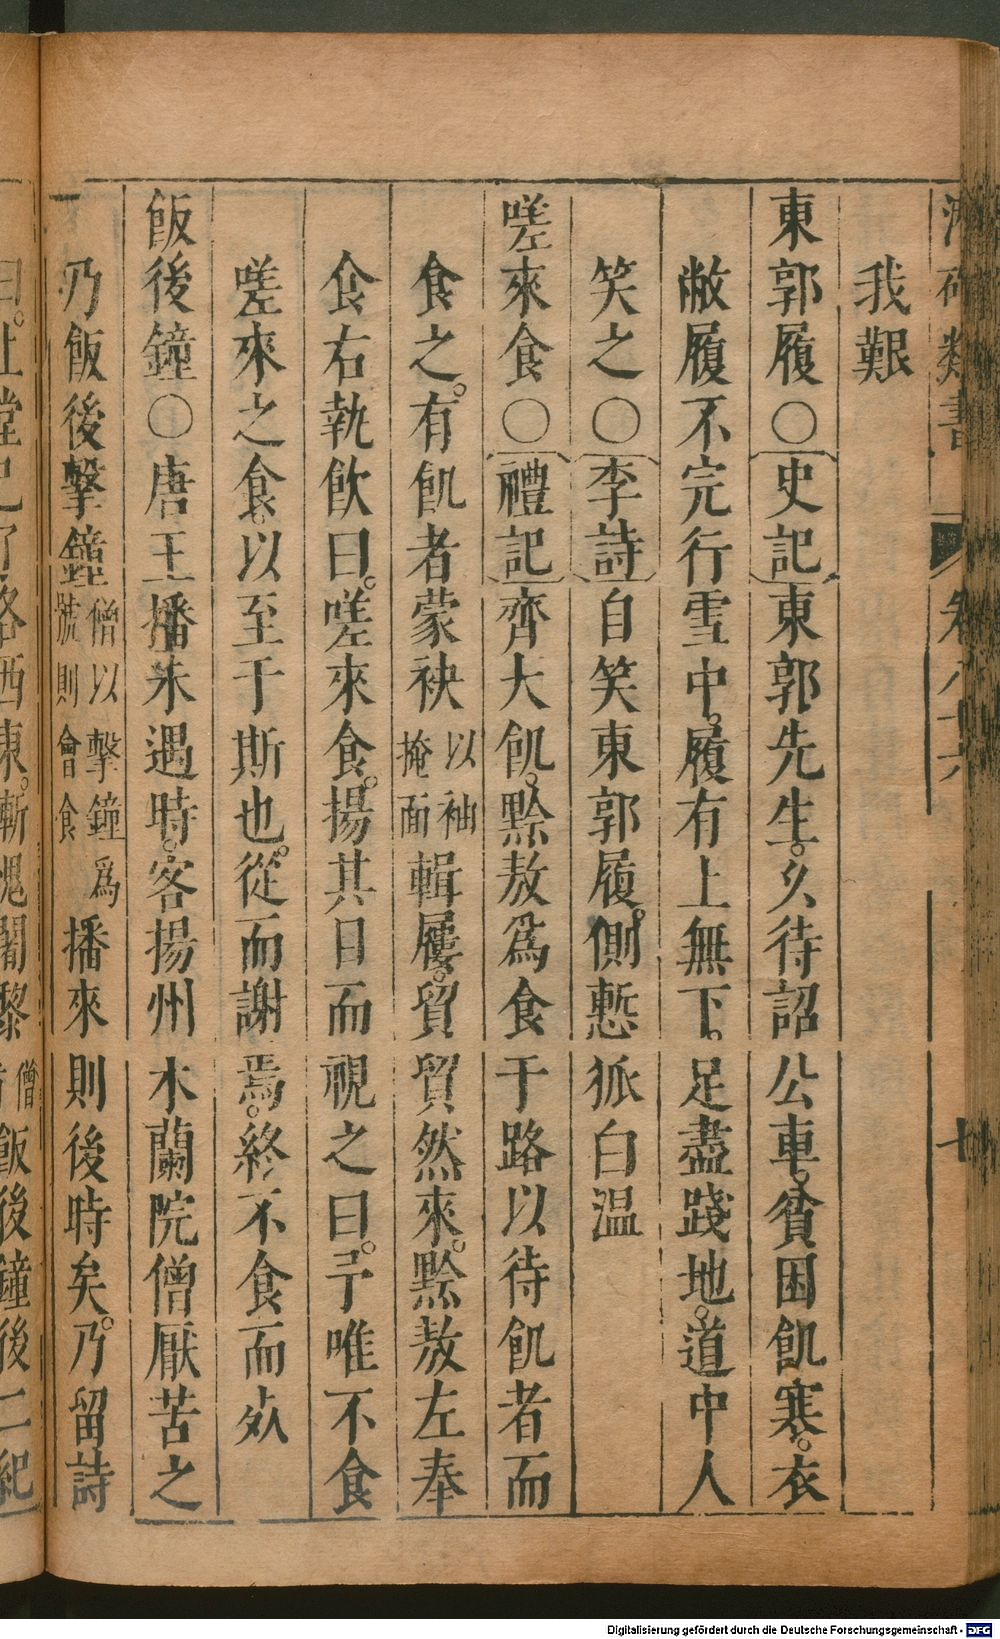 我艱
東郭履○史記東郭先生。久待詔公車。貧困飢寒。衣
敝履不完行雪中。履有上無下。足盡踐地。道中人
笑之○李詩自笑東郭履。側慙狐白温
嗟來食○禮記齊大飢。黔敖爲食于路以待飢者而
食之。有飢者蒙袂以袖掩面輯屨。貿貿然來。黔敖左奉
食右執飲曰。嗟來食。揚其目而視之曰。予唯不食
嗟來之食。以至于斯也。從而謝焉。終不食而死
飯後鐘○唐王播未遇時。客揚州木蘭院僧厭苦之
乃飯後擊鐘僧以擊鐘爲號則會食播來則後時矣。乃留詩
曰。上堂已了各西東。慚愧闍黎飯後鐘後二紀
卷八十六
七
Digitalisierung gefördert durch die Deutsche Forschungsgemeinschaft - DFG